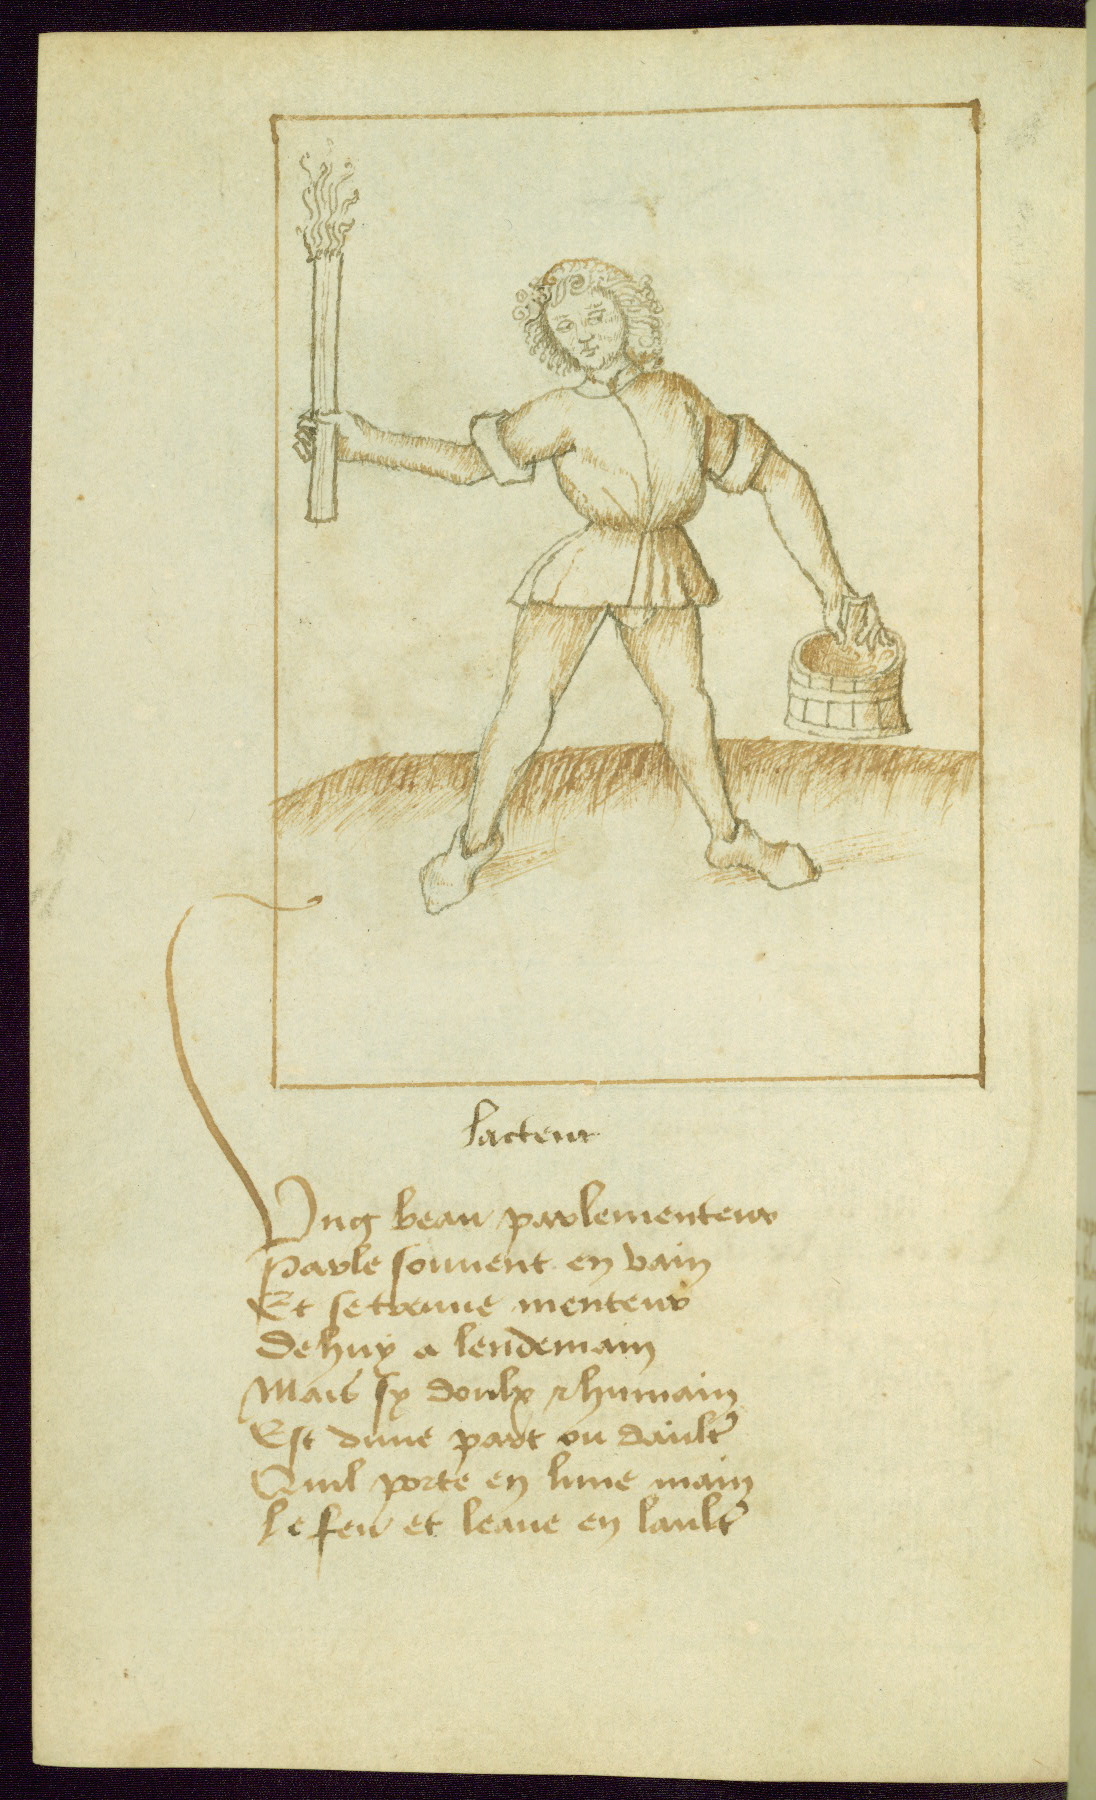 lacteur
Ung beau parlementeur
Parle souuent en vain
Et se treuue menteur
De huy a lendemain
Mais sy doulx & humain
Est dune part ou daultr̄
Quil porte en lune main
Le feu et leaue en laultr̄